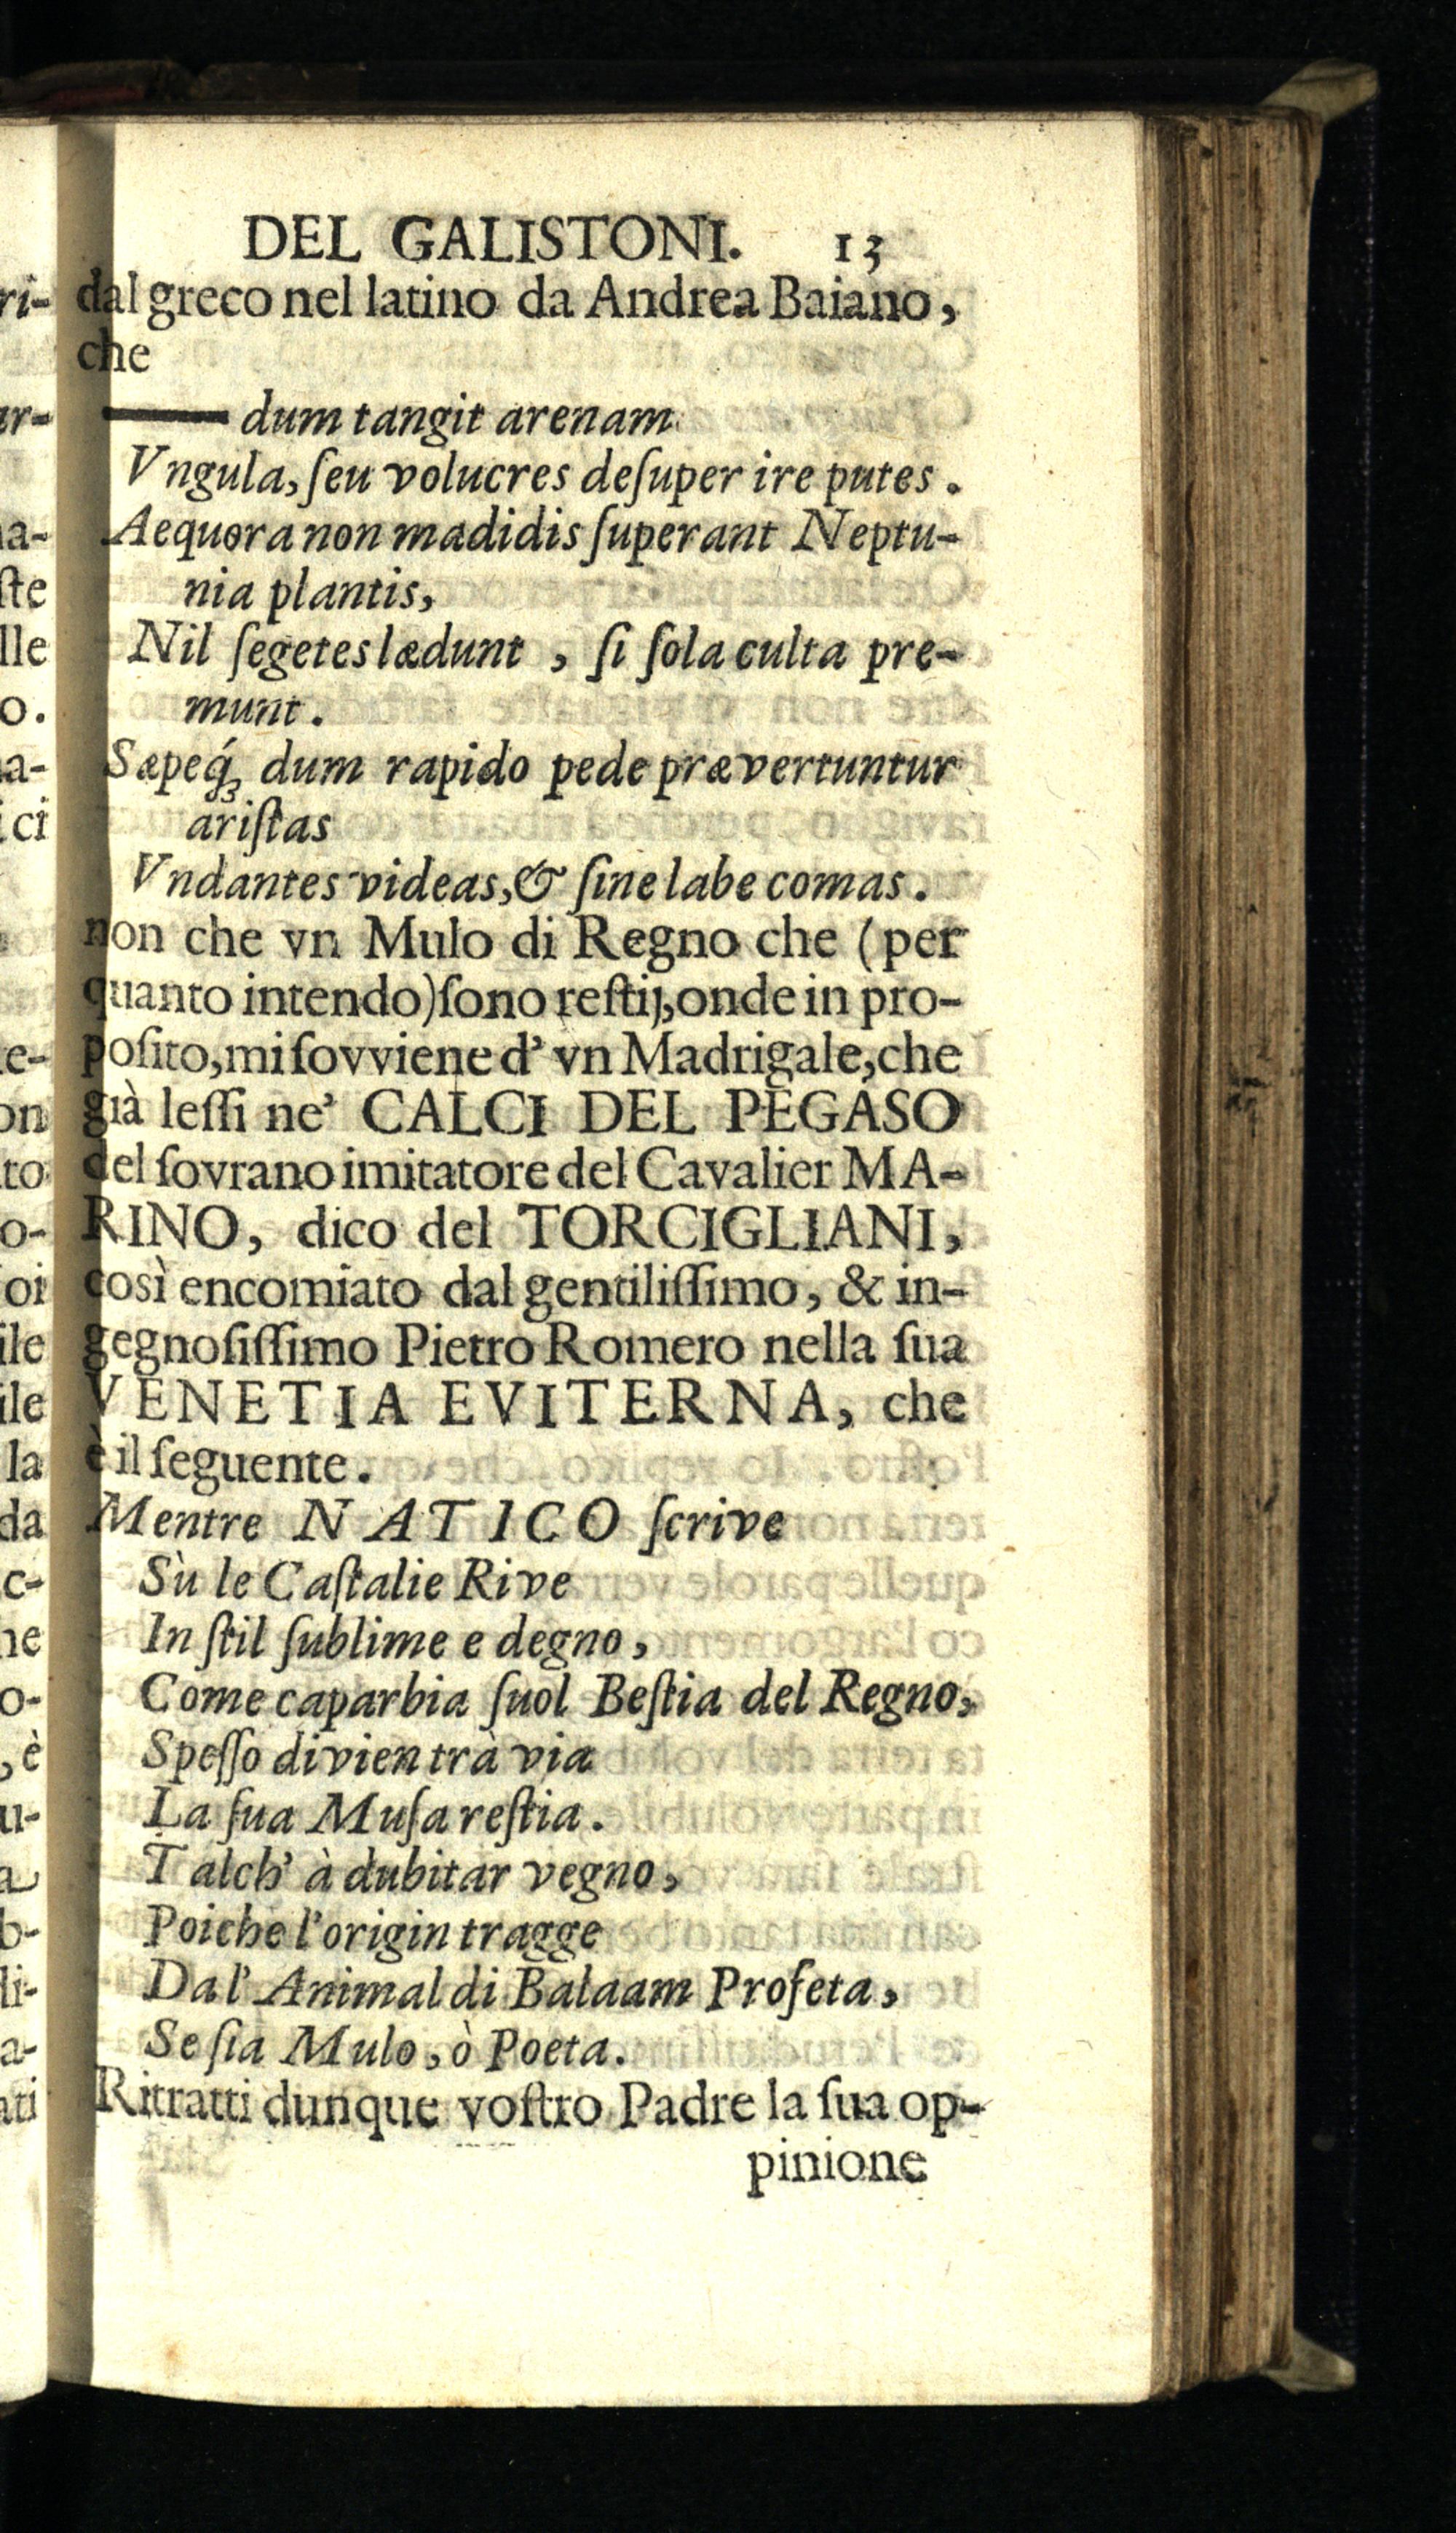 DEL GALISTONI. 13
dal greco nel latino da Andrea Baiano,
che
—— dum tangit arenam
Vngula, ſeu volucres deſuper ire putes.
Aequora non madidis ſuperant Neptu-
nia plantis,
Nil ſegetes lædunt, ſi ſola culta pre-
munt.
Sæpeq́ꝫ dum rapido pede prævertuntur
ariſtas
Vndantes videas, & ſine labe comas.
non che vn Mulo di Regno che (per
quanto intendo) ſono reſtij, onde in pro-
poſito, mi ſovviene d' vn Madrigale, che
già leſſi ne' CALCI DEL PEGASO
del ſovrano imitatore del Cavalier MA-
RINO, dico del TORCIGLIANI,
così encomiato dal gentiliſſimo, & in-
gegnoſiſſimo Pietro Romero nella ſua
VENETIA EVITERNA, che
è il ſeguente.
Mentre NATICO ſcrive
Sù le Caſtalie Rive
In ſtil ſublime e degno,
Come caparbia ſuol Beſtia del Regno,
Speſſo divien trà via
La ſua Muſa reſtia.
Talch' à dubitar vegno,
Poiche l'origin tragge
Da l' Animal di Balaam Profeta,
Se ſia Mulo, ò Poeta.
Ritratti dunque voſtro Padre la ſua op-
pinione